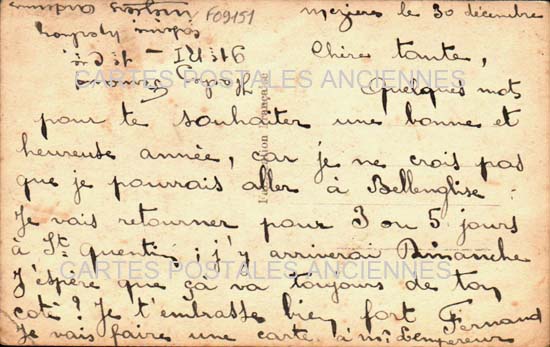 F09151
Mezières le 30 décembre
Chère tante,
Quelques mots
pour te souhaiter une bonne et
heureuse année, car je ne crois pas
que je pourrais aller à Bellenglise.
Je vais retourner pour 3 ou 5 jours
à St quentin, j'y arriverai Dimanche
J'espère que ça va toujours de ton
coté? Je t'embrasse bien fort Fernand
Je vais faire une carte à mr Lempereur
CARTES POSTALES ANCIENNES
CARTES POSTALES ANCIENNES
Française